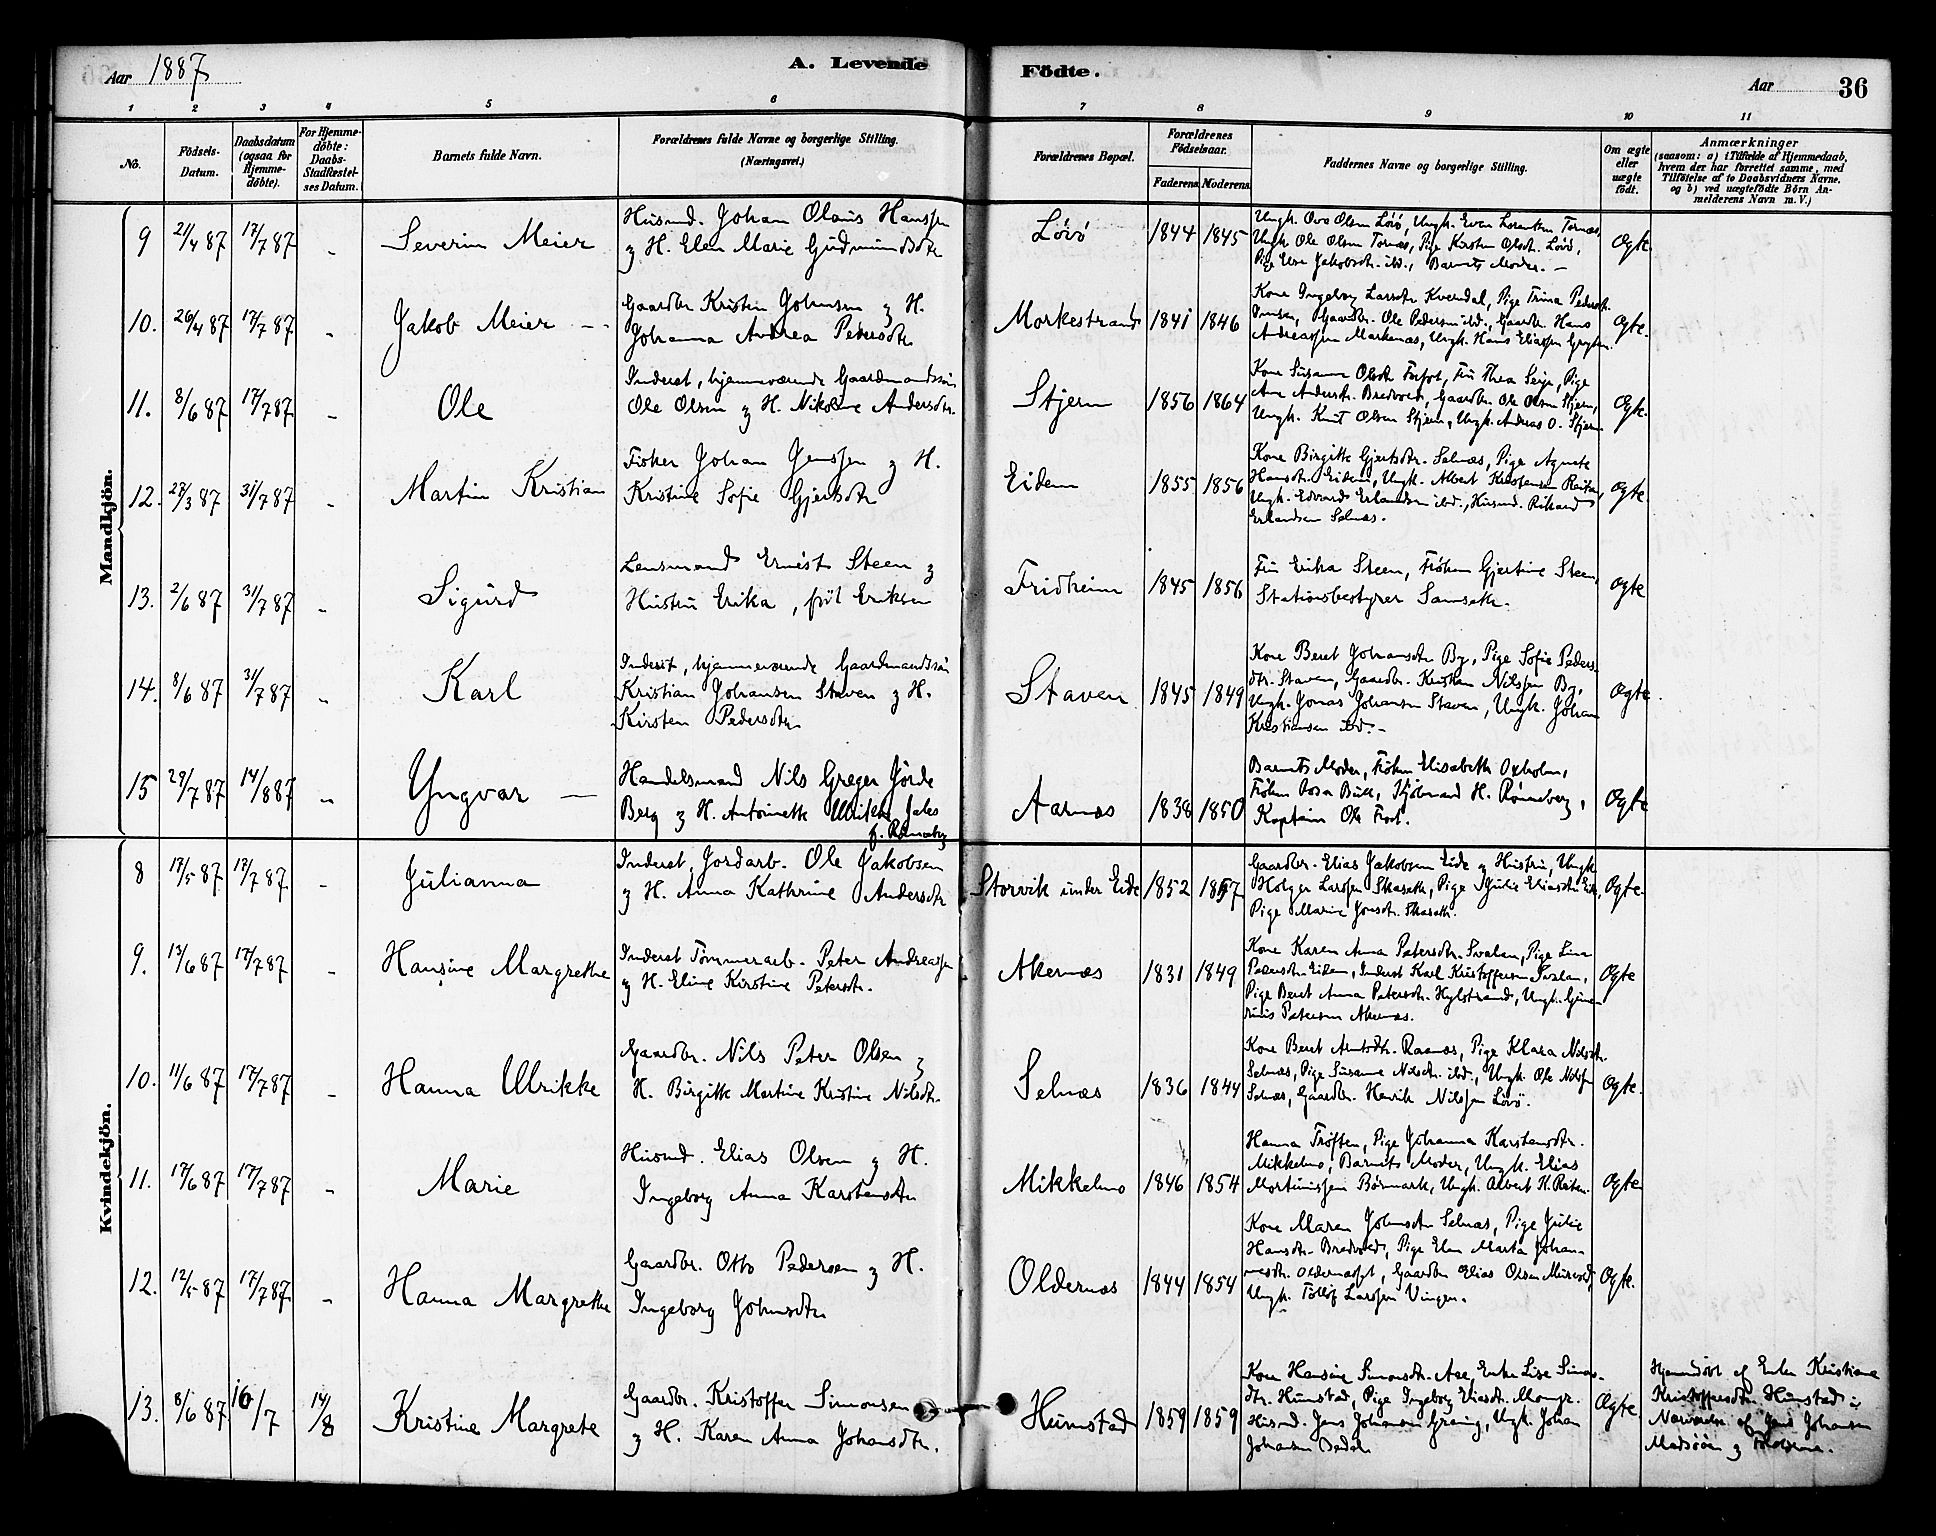 Aar 1887
A. Levende Födte.
Aar
36
1 2 3 4 5 6 7 8 9 10 11
No.
Födsels-Datum.
Daabsdatum (ogsaa for Hjemme-döbte).
For Hjemme-döbte: Daabs-Stadfæstel-ses Datum.
Barnets fulde Navn.
Forældrenes fulde Navne og borgerlige Stilling. (Næringsvei.)
Forældrenes Bopæl.
Forældrenes Födselsaar.
Faderens Moderens
Faddernes Navne og borgerlige Stilling.
Om ægte eller uægte födt.
Anmærkninger
(saasom: a) i Tilfælde af Hjemmedaab,
hvem der har forrettet samme, med
Tilföielse af to Daabsvidners Navne,
og b) ved uægtefödte Börn An-
melderens Navn m. V.)
Mandkjön.
9 21/4 87 17/7 87 Severin Meier
Husmd. Johan Olaus Hanssen
& H. Elen Marie Gudmundsdtr
Lövö 1844 1845
Ungk. Ove Olsen Lövö, Ungk. Even Lorentsen Tornæs,
Ungk. Ole Olsen Tornæs, Pige Kirsten Olsdtr. Lövö,
Pige Jakobsdtr. ibd., Barnets Moder. —
Ægte
10. 26/4 87 17/7 87 Jakob Meier —
Gaardbr. Kristen Johnsen & H.
Johanna Andrea Petersdtr
Morkestrand 1841 1846
Kone Ingeborg Larsdtr Kverndal, Pige Trina Pedersdtr.
Gaardbr. Ole Pedersen ibd., Gaardbr. Hans
Andreassen Markenæs, Ungk. Hans Eliassen
Ægte.
11. 8/6 87 17/7 87 Ole
Inderst, hjemmeværende Gaardmandssön
Ole Olsen & H. Nikoline Andersdtr.
Stjern 1856 1864
Kone Susanne Olsdtr Fru Thea Pige
Ane Andersdtr. Bredvold, Gaardbr. Ole Olsen Stjern,
Ungk. Knut Olsen Stjern, Ungk. Andreas O. Stjern.
Ægte.
12. 27/3 87 31/7 87 Martin Kristian
Fisker Johan Jenssen & H.
Kristine Sofie Gjertsdtr
Eidem 1855 1856
Kone Birgitte Gjertsdtr. Selnæs, Pige Agnete
Hansdtr. Eidem, Ungk. Albert Kristensen Reitan,
Ungk. Edvard Erlandsen ibd., Husmd. Rikard
Erlandsen Selnæs.
Ægte.
13. 2/6 87 31/7 87 Sigurd
Lensmand Ernst Steen &
Hustru Erika, född Eriksen
Fridheim 1845 1856
Fru Erika Steen, Fröken Gjertine Steen,
Stationsbestyrer
Ægte
14. 8/6 87 31/7 87 Karl
Inderst, hjemmeværende Gaardmandssön
Kristian Johansen Staven & H.
Kirsten Pedersdtr
Staven 1845 1849
Kone Beret Johansdtr By, Pige Sofie Peders-
dtr. Staven, Gaardbr. Kristian Nilssen By,
Ungk. Jonas Johansen Staven, Ungk. Johan
Kristiansen ibd. —
Ægte.
15 29/7 87 14/8 87 Yngvar —
Handelsmand Nils Greger Hjörde
Berg & H. Antoinette Ulrikke
f. Rönneberg
Aarnæs 1838 1850
Barnets Moder, Fröken Elisabeth Oxholm,
Fröken Rosa Bull, H. Rönneberg,
Kaptein Ole
Ægte
Kvindekjön.
8 17/5 87 17/7 87 Julianna
Inderst, Jordarb. Ole Jakobsen
& H. Anna Kathrine Andersdtr
Storvik under Eide 1852 1857
Gaardbr. Elias Jakobsen Eide & Hustru, Ungk.
Holger Larssen Skaseth, Pige Julie Eliasdtr. Eide,
Pige Marie Jonsdtr. Skaseth.
Ægte.
9. 13/6 87 17/7 87 Hansine Margrethe
Inderst Tömmerarb. Peter Andreassen
& H. Eline Kirstine Petersdtr.
Akernæs 1831 1849
Kone Karen Anna Petersdtr. Svalen, Pige Lina
Pedersdtr. Eidem, Inderst Karl Kristoffersen Svalen,
Pige Beret Anna Petersdtr. Hylstrand, Ungk.
Petersen Akernæs.
Ægte
10. 11/6 87 17/7 87 Hanna Ulrikke
Gaardbr. Nils Peter Olsen &
H. Birgitte Martine Kristine Nilsdtr.
Selnæs 1836 1844
Kone Beret Arntsdtr. Raanæs, Pige Klara Nilsdtr.
Selnæs, Pige Susanne Nilsdtr. ibd., Ungk. Ole Nilssen
Selnæs, Gaardbr. Henrik Nilssen Lövö.
Ægte.
11. 17/6 87 17/7 87 Marie
Husmd. Elias Olsen & H.
Ingeborg Anna Karstensdtr
Mikkelmo 1846 1854
Hanna Tröften, Pige Johanna Karstensdtr.
Mikkelmo, Barnets Moder, Ungk. Elias
Mortinussen Börmark, Ungk. Albert K. Reitan.
Ægte
12. 12/5 87 17/7 87 Hanna Margrethe
Gaardbr. Otto Pedersen & H.
Ingeborg Johnsdtr
Oldernæs 1844 1854
Kone Maren Johnsdtr Selnæs, Pige Julie
Hansdtr. Bredvold, Pige Elen Marta Johan-
nesdtr. Gaardbr. Elias Olsen
Ungk. Tollef Larssen Vingen.
Ægte.
13. 8/6 87 10/7 14/8 Kristine Margrete
Gaardbr. Kristoffer Simonsen
& H. Karen Anna Johansdtr.
Humstad 1859 1859
Kone Hansine Simonsdtr. Aae, Enke Lise Simons-
dtr. Humstad, Pige Ingeborg Eliasdtr.
Husmd. Jens Johansen Ungk. Johan
Johansen
Ægte.
Hjemmedöbt af Enke Kristiane
Kristoffersdtr. Humstad i
Nærværelse af Jens Johansen
Madsöen & Forældrene.